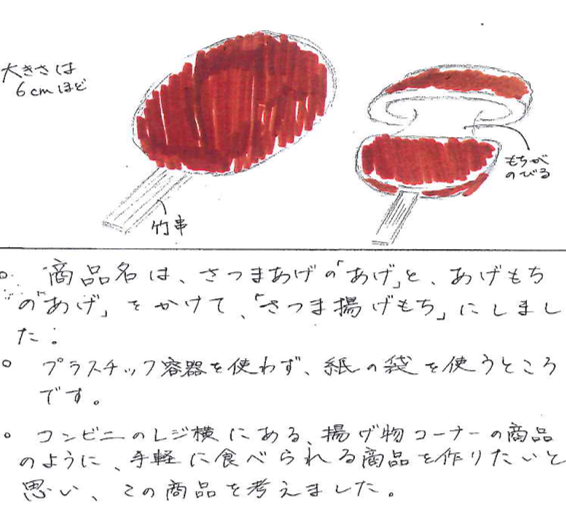 大きさは
6cmほど
竹串
もちが
のびる
。商品名は、さつまあげの「あげ」と、あげもち
の「あげ」をかけて、「さつま揚げもち」にしまし
た。
。プラスチック容器を使わず、紙の袋を使うところ
です。
。コンビニのレジ横にある、揚げ物コーナーの商品
のように、手軽に食べられる商品を作りたいと
思い、この商品を考えました。